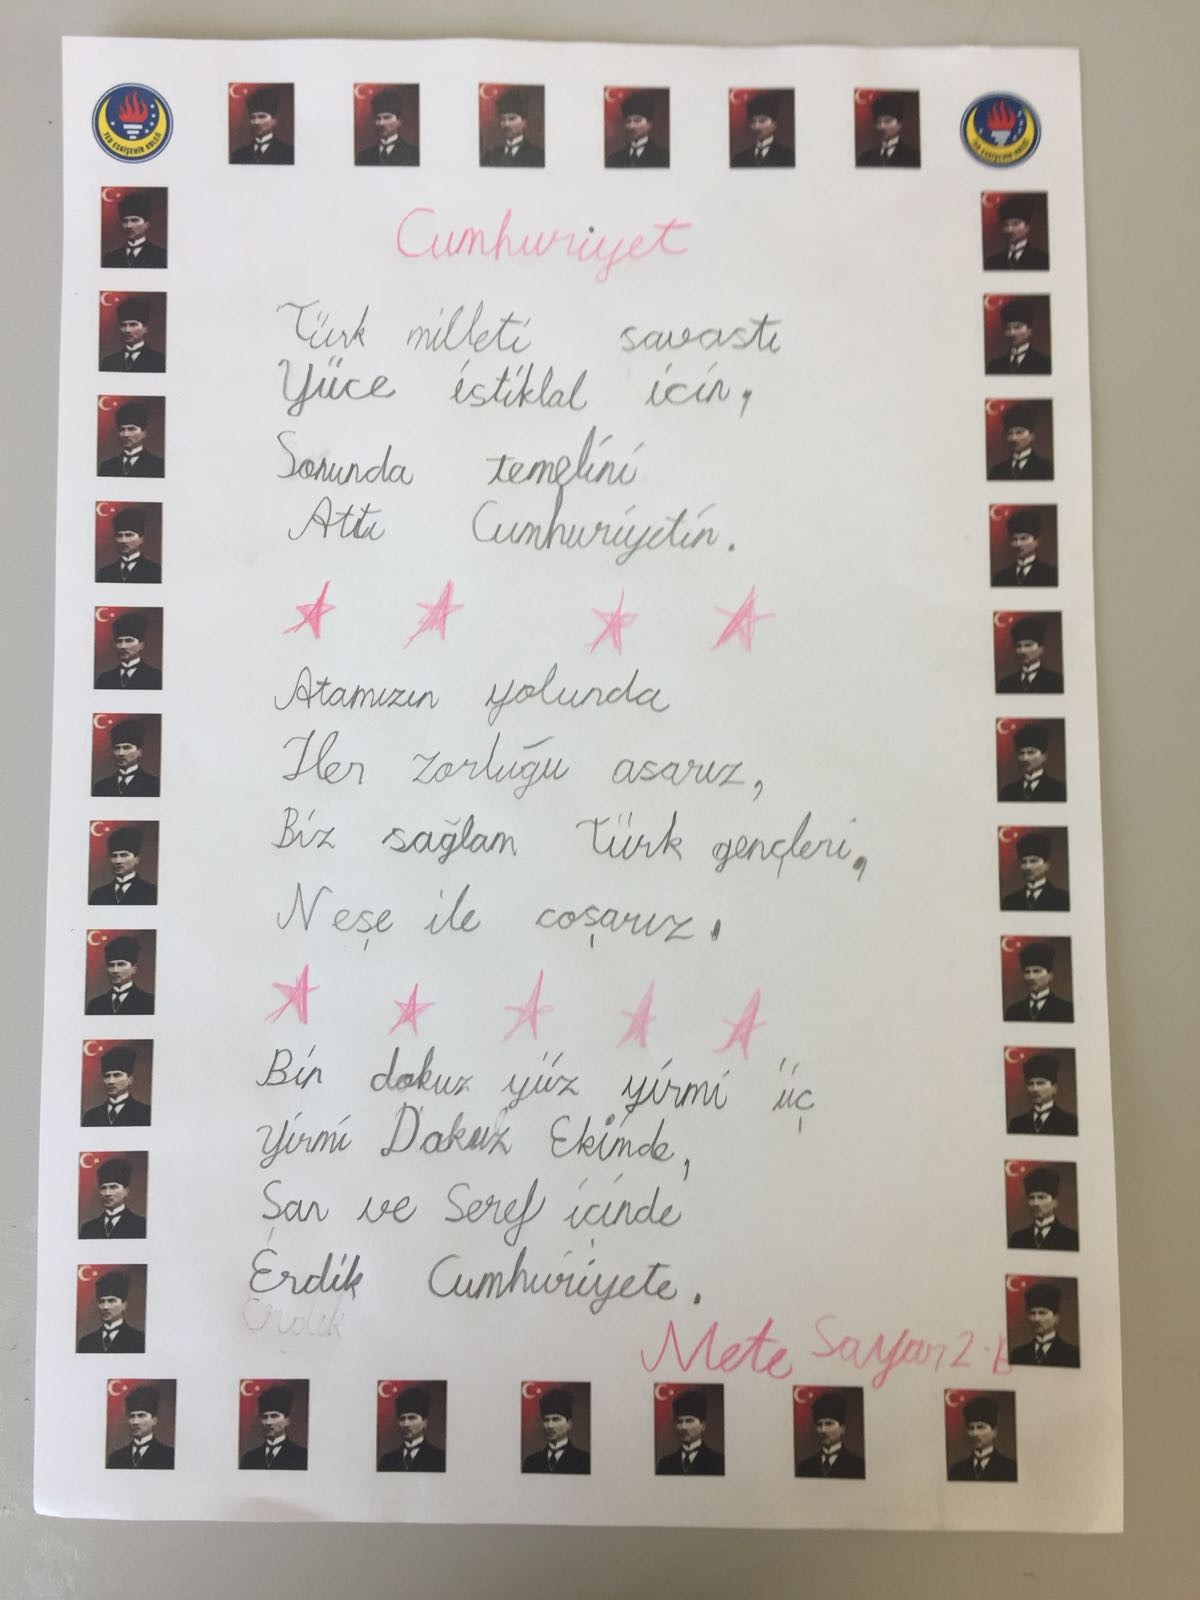 TED ESKİŞEHİR KOLEJİ
TED ESKİŞEHİR KOLEJİ
Cumhuriyet
Türk milleti savastı
Yüce istiklal icin,
Sonunda temelini
Attı Cumhuriyetin.
Atamızın yolunda
Her zorluğu asarız,
Biz sağlam Türk gençleri,
Neşe ile coşarız.
Bin dokuz yüz yirmi üç
Yirmi Dokuz Ekimde,
Şan ve Seref içinde
Erdik Cumhuriyete.
Erdik
Mete Sayar 2-B